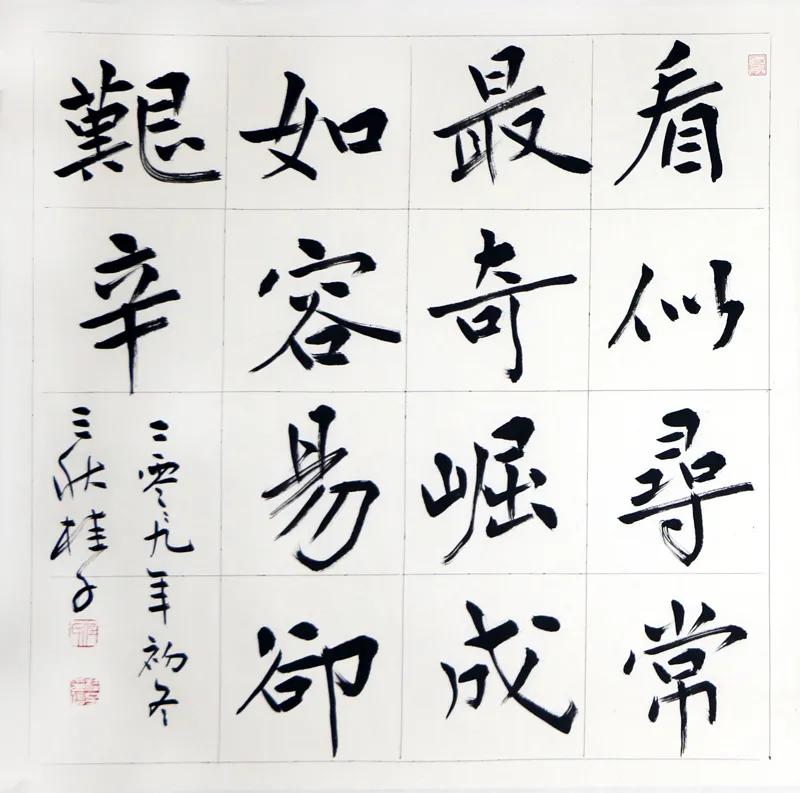 看似尋常
最奇崛成
如容易卻
艱辛
二零〻九年初冬
三秋桂子